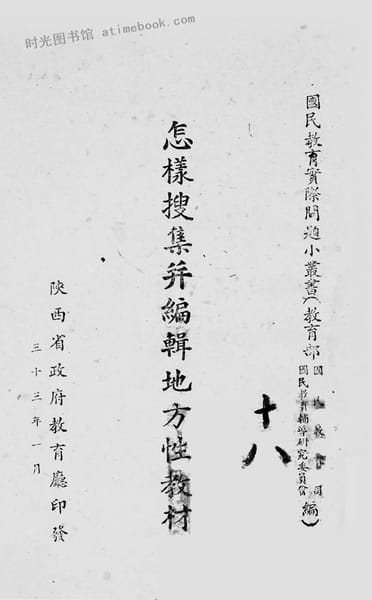 时光图书馆 atimebook.com
國民教育實際問題小叢書(教育部
國民教育司
國民教育輔導研究委員會
編)
十八
怎樣搜集并編輯地方性教材
陝西省政府教育廳印發
三十三年一月